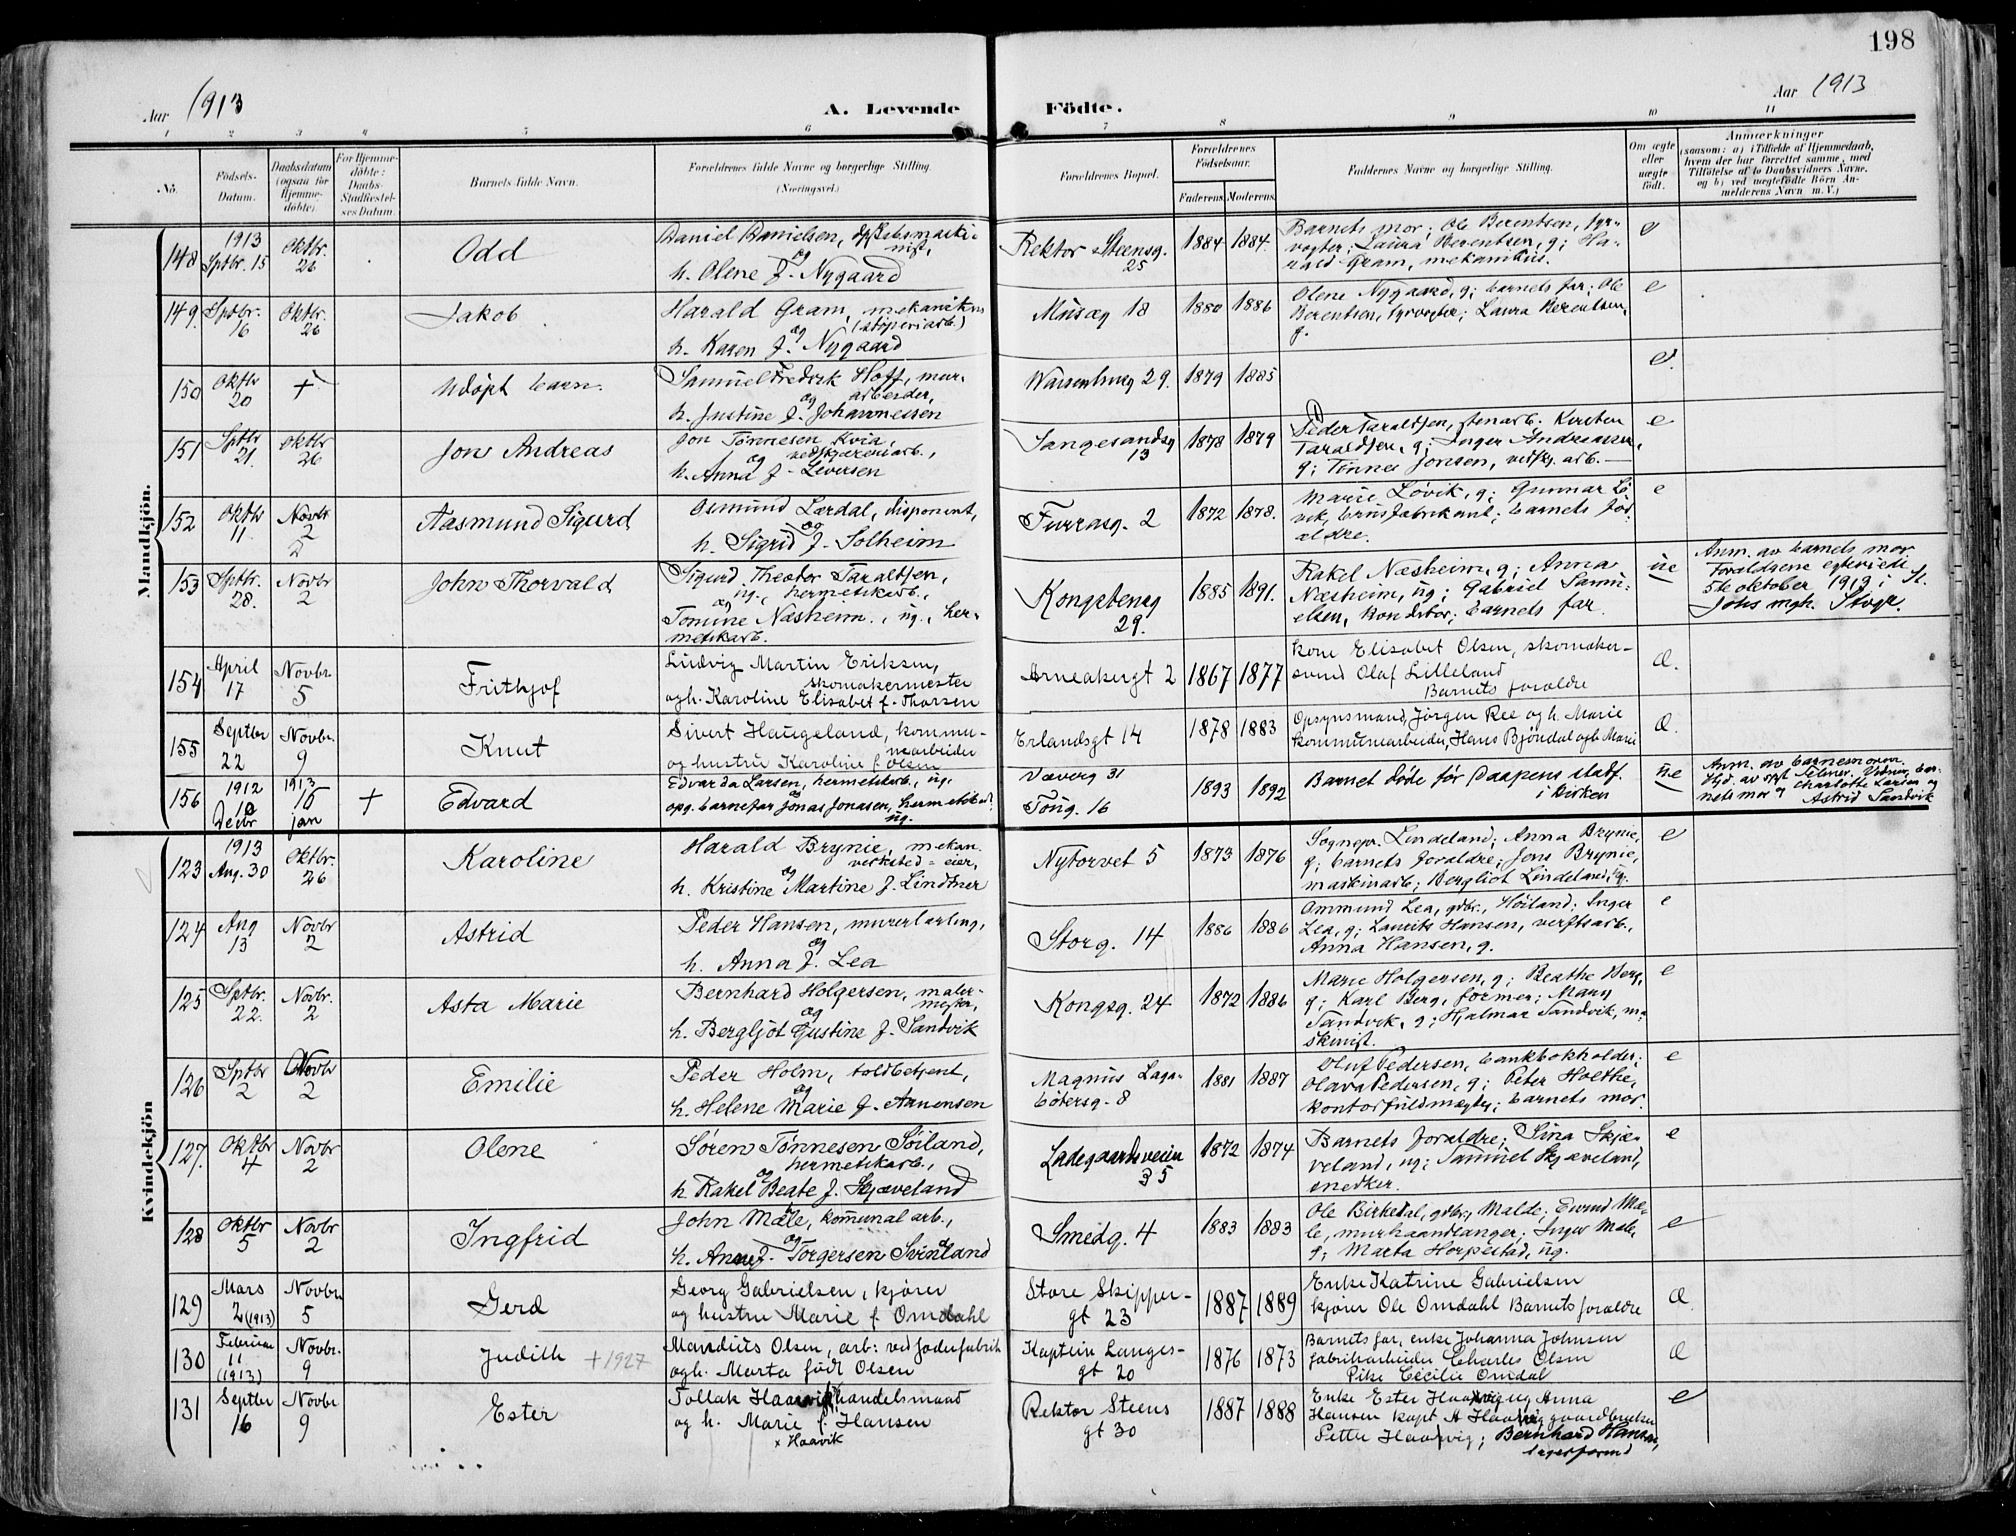 198
Aar 1913
A. Levende
Födte.
Aar 1913
1 2 3 4 5 6 7 8 9 10 11
No.
Födsels-
Datum.
Daabsdatum
(ogsaa for
Hjemme-
döbte).
For Hjemme-
döbte:
Daabs-
Stadfæstel-
ses Datum.
Barnets fulde Navn.
Forældrenes fulde Navne og borgerlige Stilling.
(Næringsvei.)
Forældrenes Bopæl.
Forældrenes
Födselsaar.
Faderens
Moderens
Faddernes Navne og borgerlige Stilling.
Om ægte
eller
uægte
født.
Anmærkninger
(saasom: a) i Tilfælde af Hjemmedaab,
hvem der har forrettet samme, med
Tilföielse af to Daabsvidners Navne,
og b) ved uægtefødte Börn An-
melderens Navn m. V.)
Mandkjön.
148 1913 Sptbr. 15 Oktbr. 26 Odd
Daniel Danielsen,
og
h. Olene f. Nygaard
Rektor Steensg. 25 1884 1884
Barnets mor; Ole Berentsen, fyr-
vogter; Laura Berentsen, g; Ha-
rald Gram, mekanikus.
e
149. Sptbr. 16 Oktbr. 26 Jakob
Harald Gram, mekanikus
og (støperiarb.)
h. Karen f. Nygaard
Musæg 18 1880 1886
Olene Nygaard, g; barnets far; Ole
Berentsen, fyrvogter; Laura Berentsen,
g.
e
150 Oktbr 20 + Udøpt barn.
Samuel Fredrik Hoff, mur-
og arbeider,
h. Justine f. Johannessen
29. 1879 1885
e.
151 Sptbr 21. Oktbr 26 Jon Andreas
Jon Tønnesen Kvia,
og vedskjæreriarb.,
h. Anna f. Leversen
Langesandsg 13 1878 1879
Peder Taraldsen, stenarb. Kirsten
Taraldsen, g; Inger Andreassen,
g; Tønnes Jonsen, vedskj. arb.
e
152 Oktbr 11. Novbr 2 Aasmund Sigurd
Osmund Lærdal, disponent,
og
h. Sigrid f. Solheim
Furrasg. 2 1872 1878.
Marie Løvik, g; Gunnar Lø-
vik, brusfabrikant; barnets for-
ældre.
e
153 Sptbr. 28. Novbr 2 John Thorvald
Sigurd Theodor Taraldsen,
ug., hermetikarb.,
og
Tomine Næsheim, ug., her-
metikarb.
Kongsbeng 29. 1885 1891.
Rakel Næsheim, g; Anna
Næsheim, ug; Gabriel Samu-
elsen, konditor; barnets far.
ue
Anm. av barnets mor
Forældrene egteviede
5te oktober 1913 i St.
Johs mgh. Stvgr.
154 April 17 Novbr. 5 Frithjof
Ludvig Martin Eriksen,
skomakermester
og h. Karoline Elisabet f. Thorsen
Arneabergt 2 1867 1877
kone Elisabet Olsen, skomaker-
svend Olaf Lilleland
Barnets foraldre
Æ.
155 Septbr 22 Novbr. 9 Knut
Sivert Haugeland, kommu-
nearbeider
og hustru Karoline f. Olsen
Erlandsgt 14 1878 1883
Opsynsmand Jørgen Ree og h. Marie
kommunearbeider Hans Bjøndal og h. Marie
Æ.
156 1912 Decbr 1913 15 jan + Edvard
Edvarda Larsen, hermetikarb., ug.
og
opg. barnefar Jonas Jonasen, hermetikarb.
ug.
Væverg 31
Töug. 16
1893 1892
Barnet døde før daapens stadf.
i kirken
ue
Anm. av barnemoren.
Hjd. av Selmer. Vidner, bar-
nets mor og Charlotte Larsen og
Astrid Sandvik
Kvindekjön
123 1913 Aug. 30 Oktbr. 26 Karoline
Harald Brynie, mekan.
verksted = eier,
og
h. Kristine Martine f. Lindtner
Nytorvet 5 1873 1876
Sognepr. Lindeland; Anna Brynie,
g; barnets foraldre; Jens Brynie,
maskinarb; Bergliot Lindeland, ug.
e
124 Aug 13 Novbr 2 Astrid
Peder Hansen, murerlærling,
og
h. Anna f. Lea
Storg. 14 1886 1886
Ommund Lea, gdbr., Høiland; Inger
Lea, g; Laurits Hansen, verftsarb.,
Anna Hansen, g.
e
125 Sptbr. 22. Novbr. 2 Asta Marie
Bernhard Holgersen, maler-
mester,
og
h. Bergljot Gustine f. Sandvik
Kongsg. 24 1872 1886
Marie Holgersen, g; Beathe Berg,
g; Karl Berg, former; Mary
Sandvik, g; Hjalmar Sandvik, ma-
skinist.
e
126 Sptbr 2 Novbr 2 Emilie
Peder Holm, toldbetjent,
og
h. Helene Marie f. Aanensen
Magnus Laga-
bøtersg. 8 1881 1887
Oluf Pedersen, bankbokholder;
Olava Pedersen, g; Peter Holthe,
kontorfuldmægtig; barnets mor.
e
127. Oktbr 4 Novbr 2 Olene
Søren Tønnesen Søiland,
hermetikarb.,
og
h. Rakel Beate f. Skjæveland
Ladegaardsveien 35 1872 1874
Barnets foraldre; Sina Skjæ-
veland, ug; Samuel Skjæveland,
snedker.
e
128 Oktbr 5 Novbr 2 Ingfrid
John Mæle, kommunal arb.,
og
h. Anne f. Torgersen Svinland
Smedg. 4 1883 1883
Ole Birkedal, gdbr., Malde; Eivind Mæ-
le, murhaandlanger; Inger Mæle,
g; Marta Horpestad, ug.
e
129 Mars 2 (1913) Novbr 5 Gerd
Georg Gabrielsen, kjører
og hustru Marie f. Omdahl
Store Skipper-
gt 23 1887 1889
Enke Katrine Gabrielsen
kjører Ole Omdahl Barnets foraldre
Æ.
130 Februar 11 (1913) Novbr. 9 Judith +1927
Mandius Olsen, arb: ved Jæderfabrik
og h. Marta født Olsen
Kaptein Langes-
gt 20 1876 1873
Barnets far, enke Johanna Johnsen
fabrikarbeider Charles Olsen
Pike Cecilie Omdal
Æ
131 Septbr 16 Novbr 9 Ester
Tollak Haavik handelsmand
og h. Marie f. Hansen
x Haavik
Rektor Steens
gt 30 1887 1888
Enke Ester Haavig, Anna
Hansen kapt A Haavig gaardbruker
Petter Haavig; Bernhard Hansen,
lagerformd
e